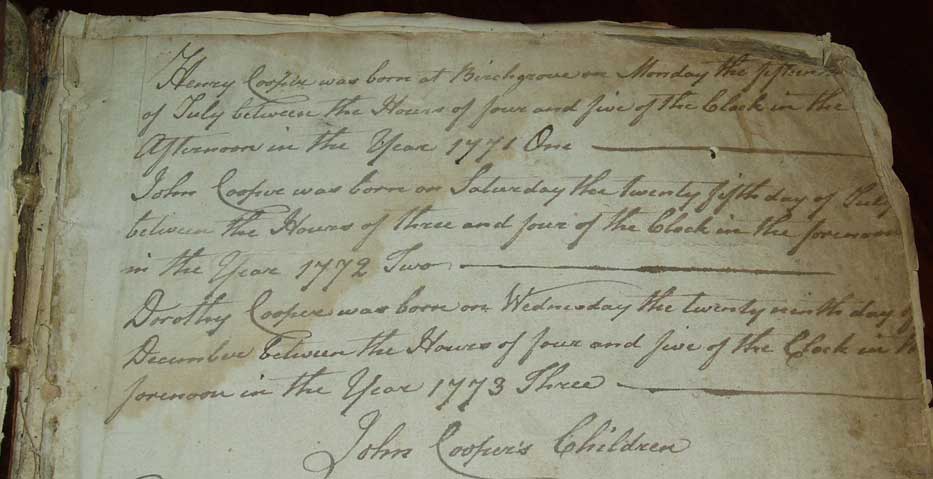 Henry Cooper was born at Birchgrove on Monday the fifteenth
of July between the Hours of four and five of the Clock in the
Afternoon in the Year 1771 One
John Cooper was born on Saturday the twenty fifth day of July
between the Hours of three and four of the Clock in the forenoon
in the Year 1772 Two
Dorothy Cooper was born on Wednesday the twenty ninth day of
December between the Hours of four and five of the Clock in
forenoon in the Year 1773 Three
John Cooper's Children